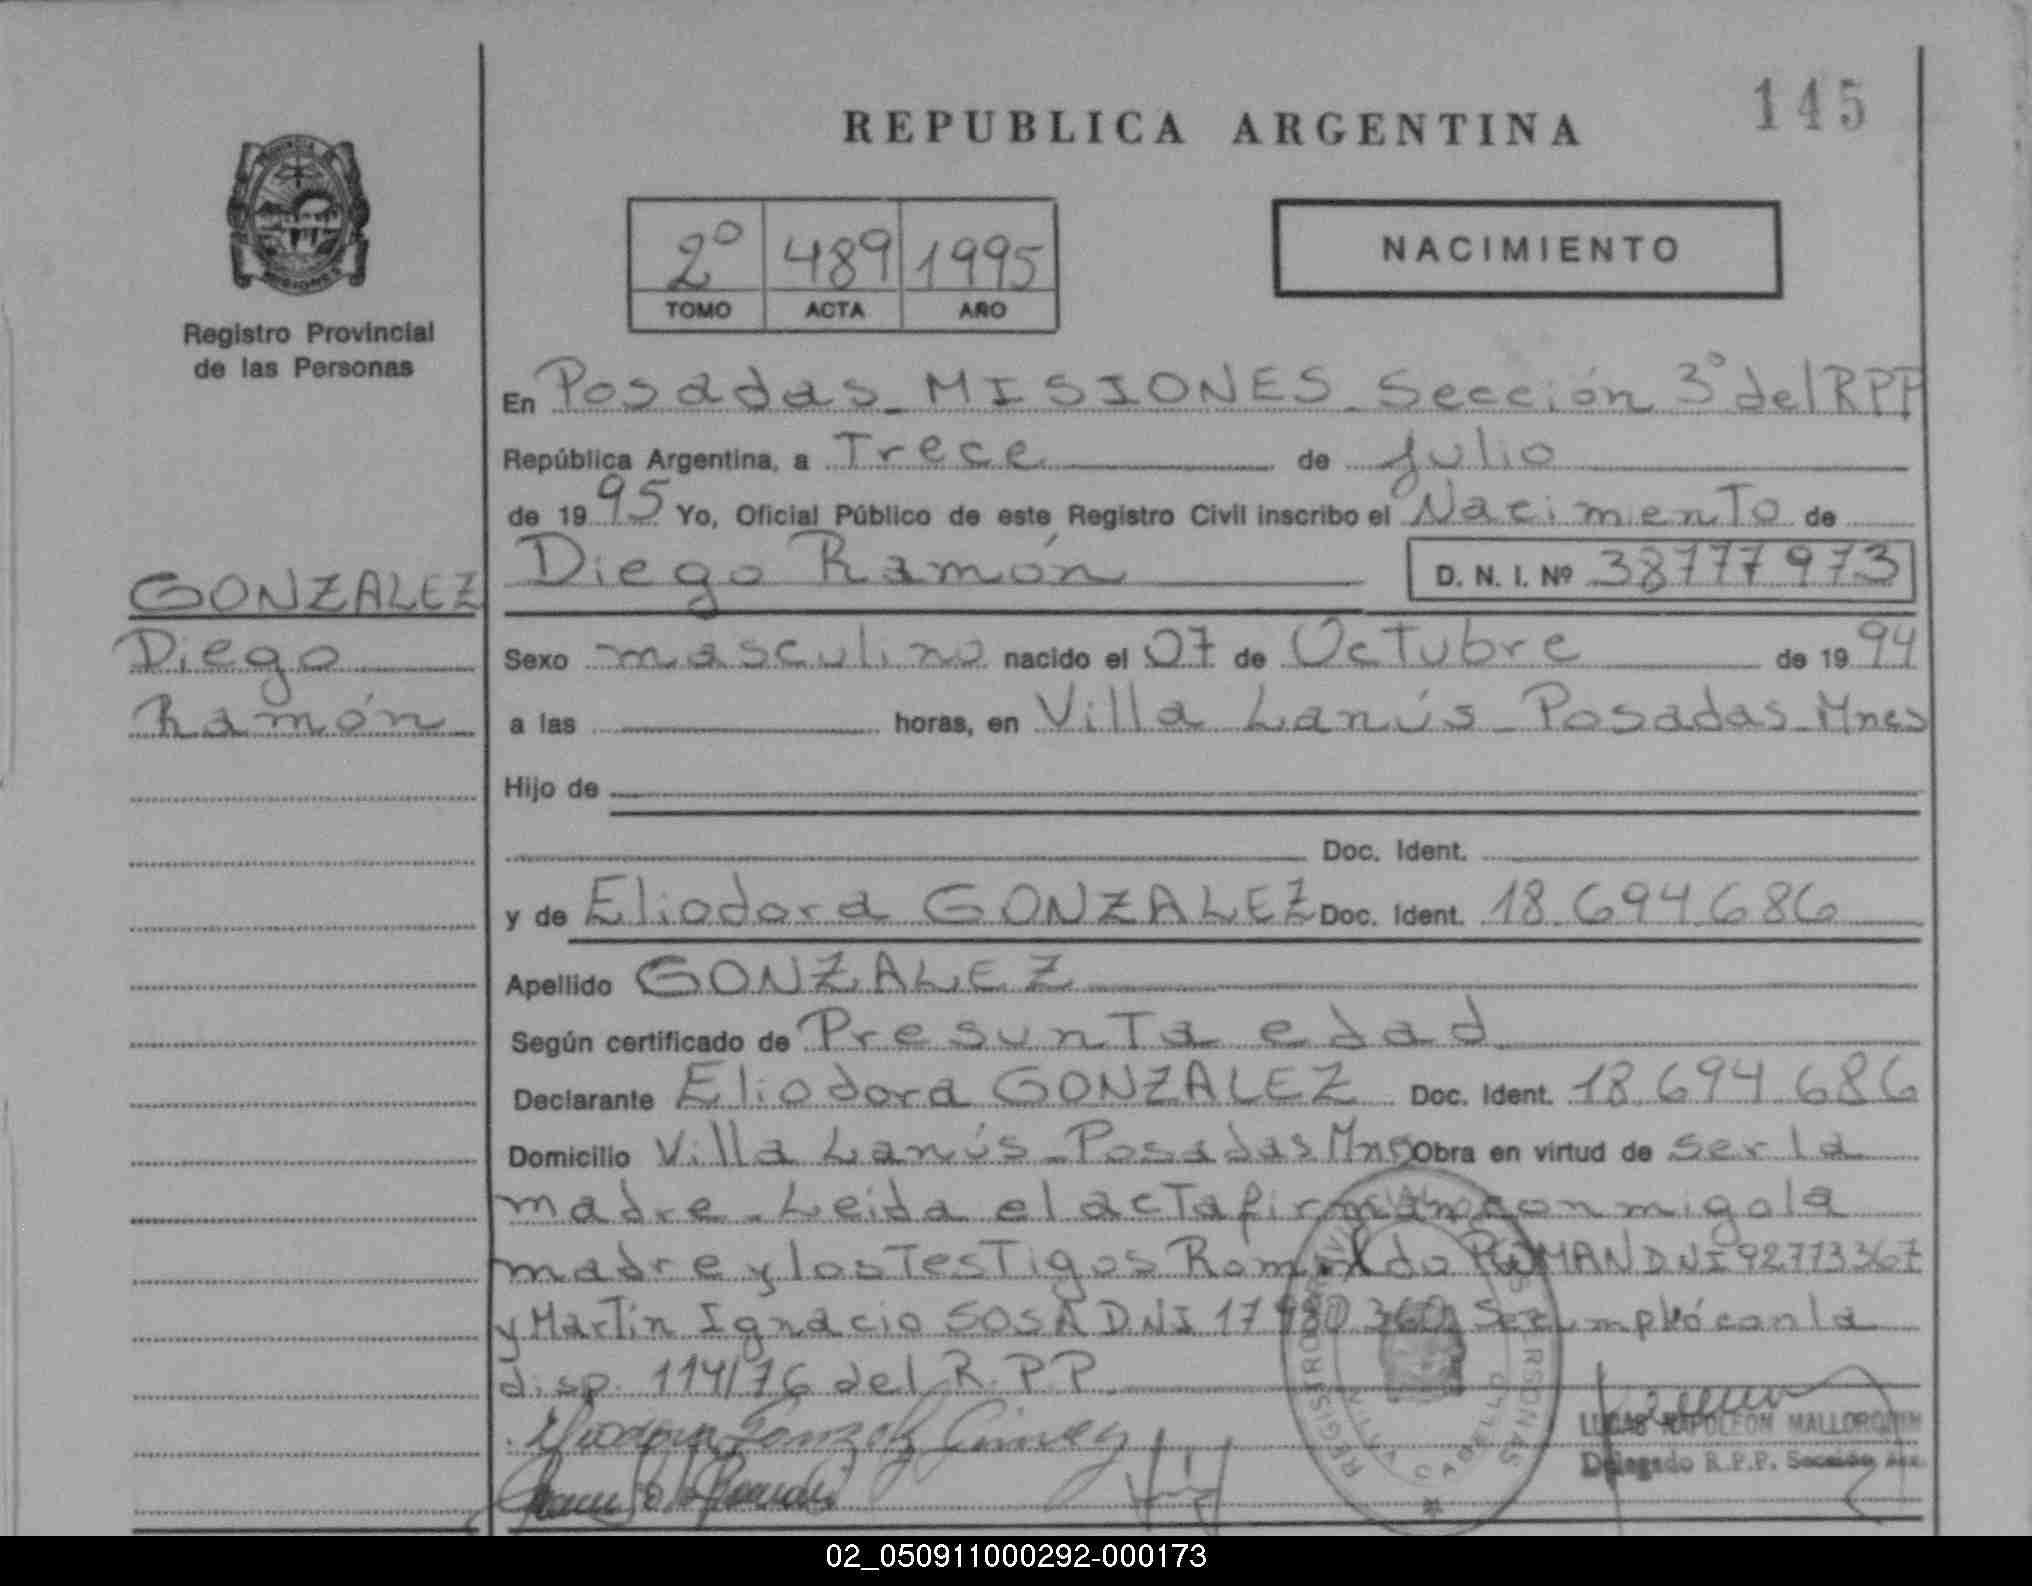 145
REPUBLICA ARGENTINA
2º 489 1995
TOMO ACTA AÑO
NACIMIENTO
MISIONES
Registro Provincial
de las Personas
En Posadas - MISIONES - Sección 3º del RPP
República Argentina, a Trece de Julio
de 1995 Yo, Oficial Público de este Registro Civil inscribo el Nacimiento de
Diego Ramón D. N. I. Nº 38777973
GONZALEZ
Diego
Ramón
Sexo masculino nacido el 07 de Octubre de 1994
a las horas, en Villa Lanús - Posadas - Mnes
Hijo de
Doc. Ident.
y de Eliodora GONZALEZ Doc. Ident. 18.694.686
Apellido GONZALEZ
Según certificado de Presunta edad
Declarante Eliodora GONZALEZ Doc. Ident. 18.694.686
Domicilio Villa Lanús - Posadas Mnes Obra en virtud de ser la
madre - Leida el acta firman conmigo la
madre y los Testigos Romualdo ROMAN DNI 92773367
y Martín Ignacio SOSA DNI 17980360 Se cumplió con la
disp. 114/76 del R.P.P.
LUCAS NAPOLEON MALLORQUIN
Delegado R.P.P. Sección
02_050911000292-000173